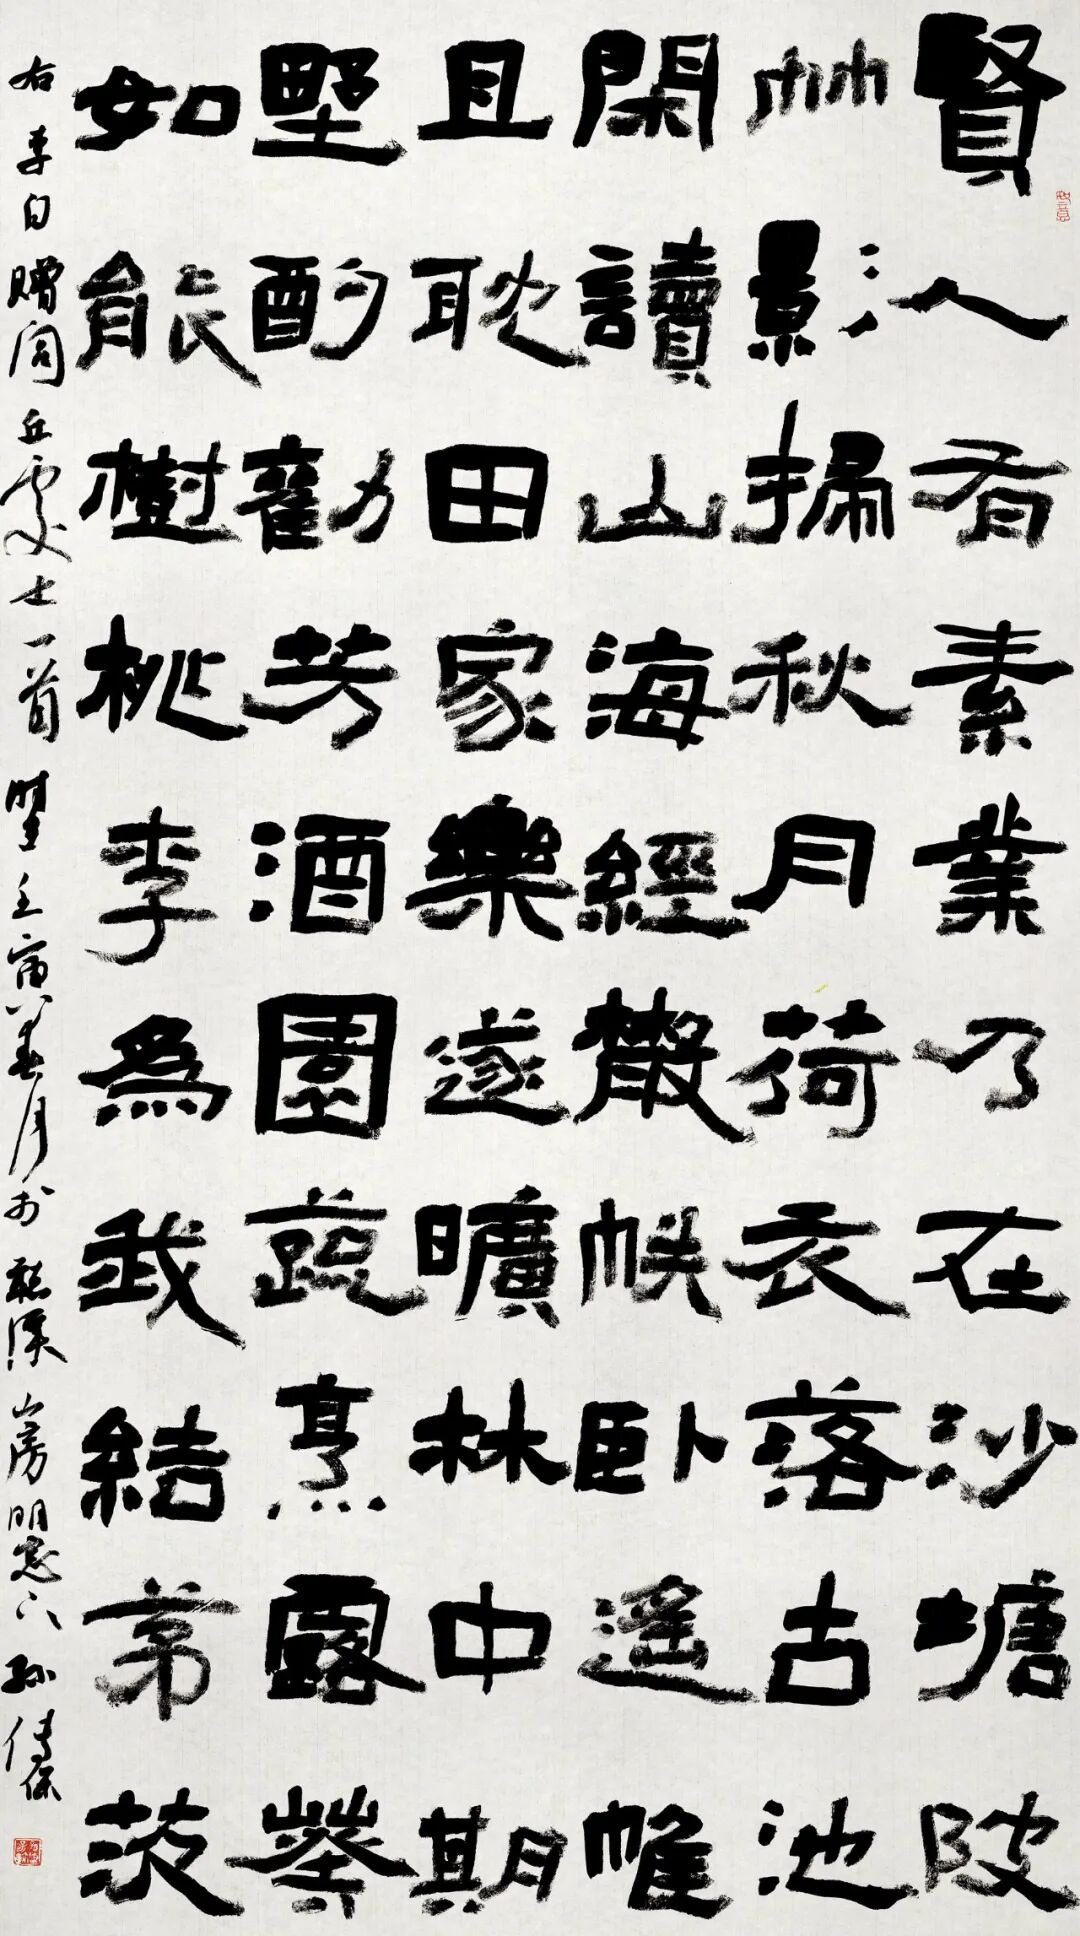 賢人有素業乃在沙塘陂
竹影掃秋月荷衣落古池
閑讀山海經散帙臥遙帷
且耽田家樂遂曠林中期
野酌勸芳酒園蔬烹露葵
如能樹桃李為我結茅茨
右李白贈閭丘處士一首時壬寅春月於溪山房明窗下孫傳保
如意